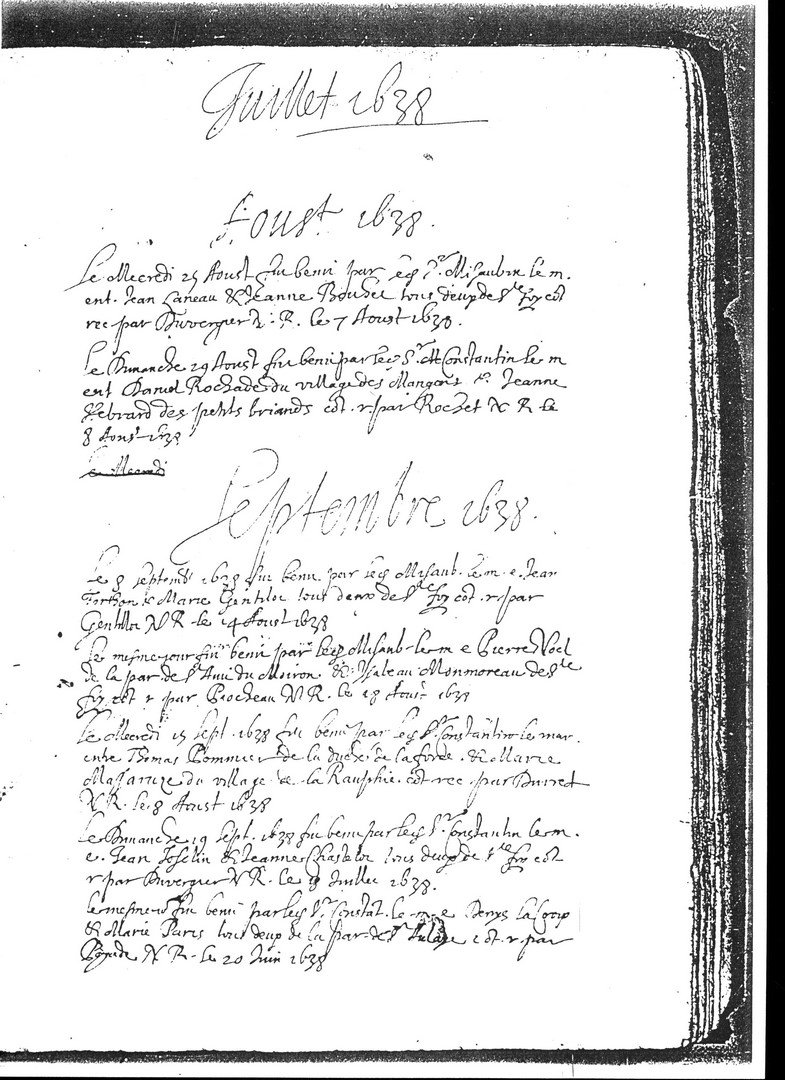 Juillet 1638
Aoust 1638.
Le Mecredi 25 Aoust fut beni par le Sr. Misaubin le m.
ent. Jean Caneau & Jeanne Boudet tous deux de Ste foy cot
rec par Duvergier N. R. le 7 Aoust 1638.
Le Dimanche 29 Aoust fut beni par Sr. Constantin le m
ent Daniel Rochade du village des Mangons & Jeanne
Hebrard des petits briands cot. r. par Rochet N R le
8 Aoust 1638
Le Mecredi
Septembre 1638.
Le 8 septemb 1638 fut beni par Misaub. le m. e. Jean
& Marie Gentilot tous deux de Ste foy cot. r. par
Gentillot N R. le 14 Aoust 1638
Le mesme jour fut beni par Misaub. le m e Pierre Noel
de la par. de St Avi du Moiron & Isabeau Monmoreau de Ste
foy cot r par Brocheau N R. le 18 Aoust 1638
Le Mecredi 15 Sept. 1638 fut beni par Sr. Constantin le mar.
entre Thomas Pommier de la duché de la force. & Marie
du village de la Rauphie. cot rec. par Duiret
N R. le 8 Aoust 1638
Le Dimanche 19 Sept. 1638 fut beni par Sr. Constantin le m.
e. Jean Joselin & Jeanne Chastelot tous deux de Ste foy cot
r par Duvergier N R. le Juillet 1638.
Le mesme fut beni par Sr. Constat. le m e Denys la Coop
& Marie Paris tous deux de la par. de St cot. r. par
N R. le 20 Juin 1638